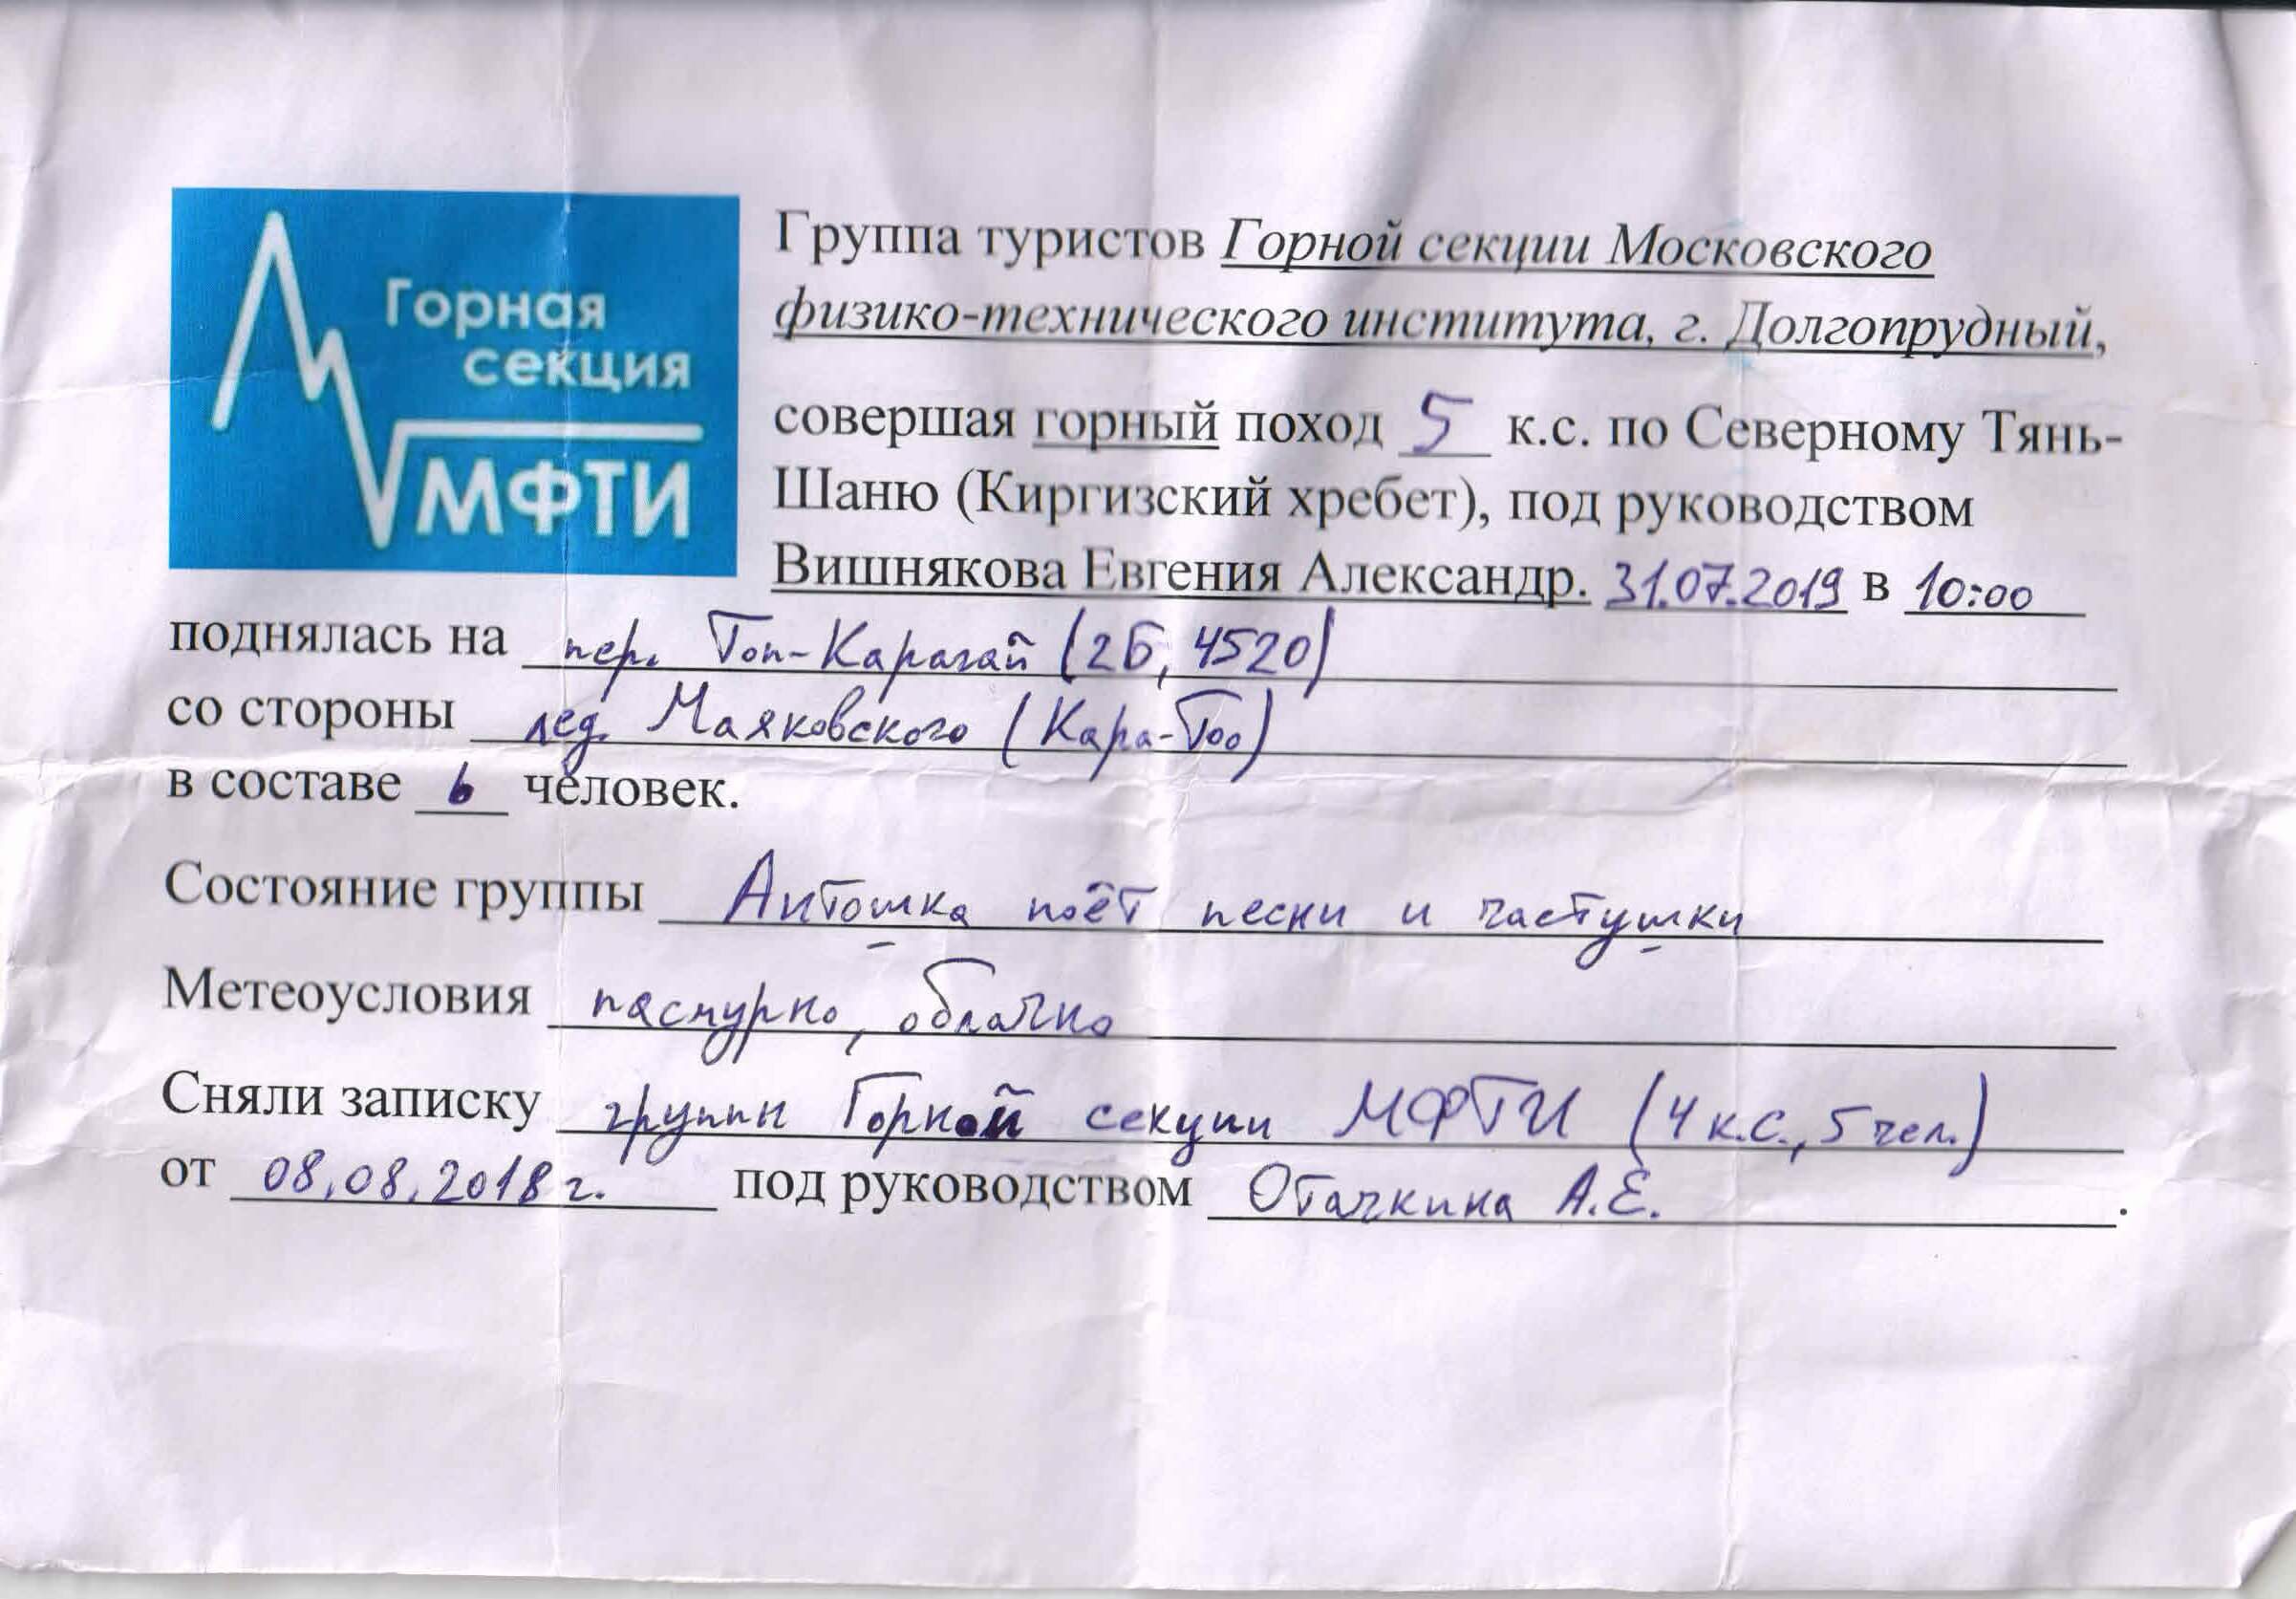 Горная
секция
МФТИ
Группа туристов Горной секции Московского
физико-технического института, г. Долгопрудный,
совершая горный поход 5 к.с. по Северному Тянь-
Шаню (Киргизский хребет), под руководством
Вишнякова Евгения Александр. 31.07.2019 в 10:00
поднялась на пер. Топ-Карагай (2Б, 4520)
со стороны лед. Маяковского (Кара-Тоо)
в составе 6 человек.
Состояние группы Антошка поёт песни и частушки
Метеоусловия пасмурно, облачно
Сняли записку группы Горной секции МФТИ (4 к.с., 5 чел.)
от 08.08.2018 г. под руководством Отачкина А.Е.